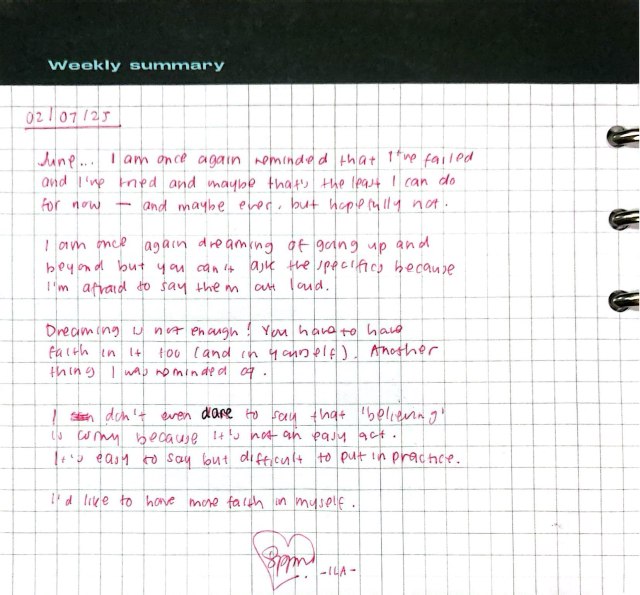 Weekly summary
02/07/25
June... I am once again reminded that I've failed
and I've tried and maybe that's the least I can do
for now — and maybe ever. but hopefully not.
I am once again dreaming of going up and
beyond but you can't ask the specifics because
I'm afraid to say them out loud.
Dreaming is not enough! You have to have
faith in it too (and in yourself). Another
thing I was reminded of.
I don't even dare to say that 'believing'
is corny because it's not an easy act.
It's easy to say but difficult to put in practice.
I'd like to have more faith in myself.
8pm
-ILA-